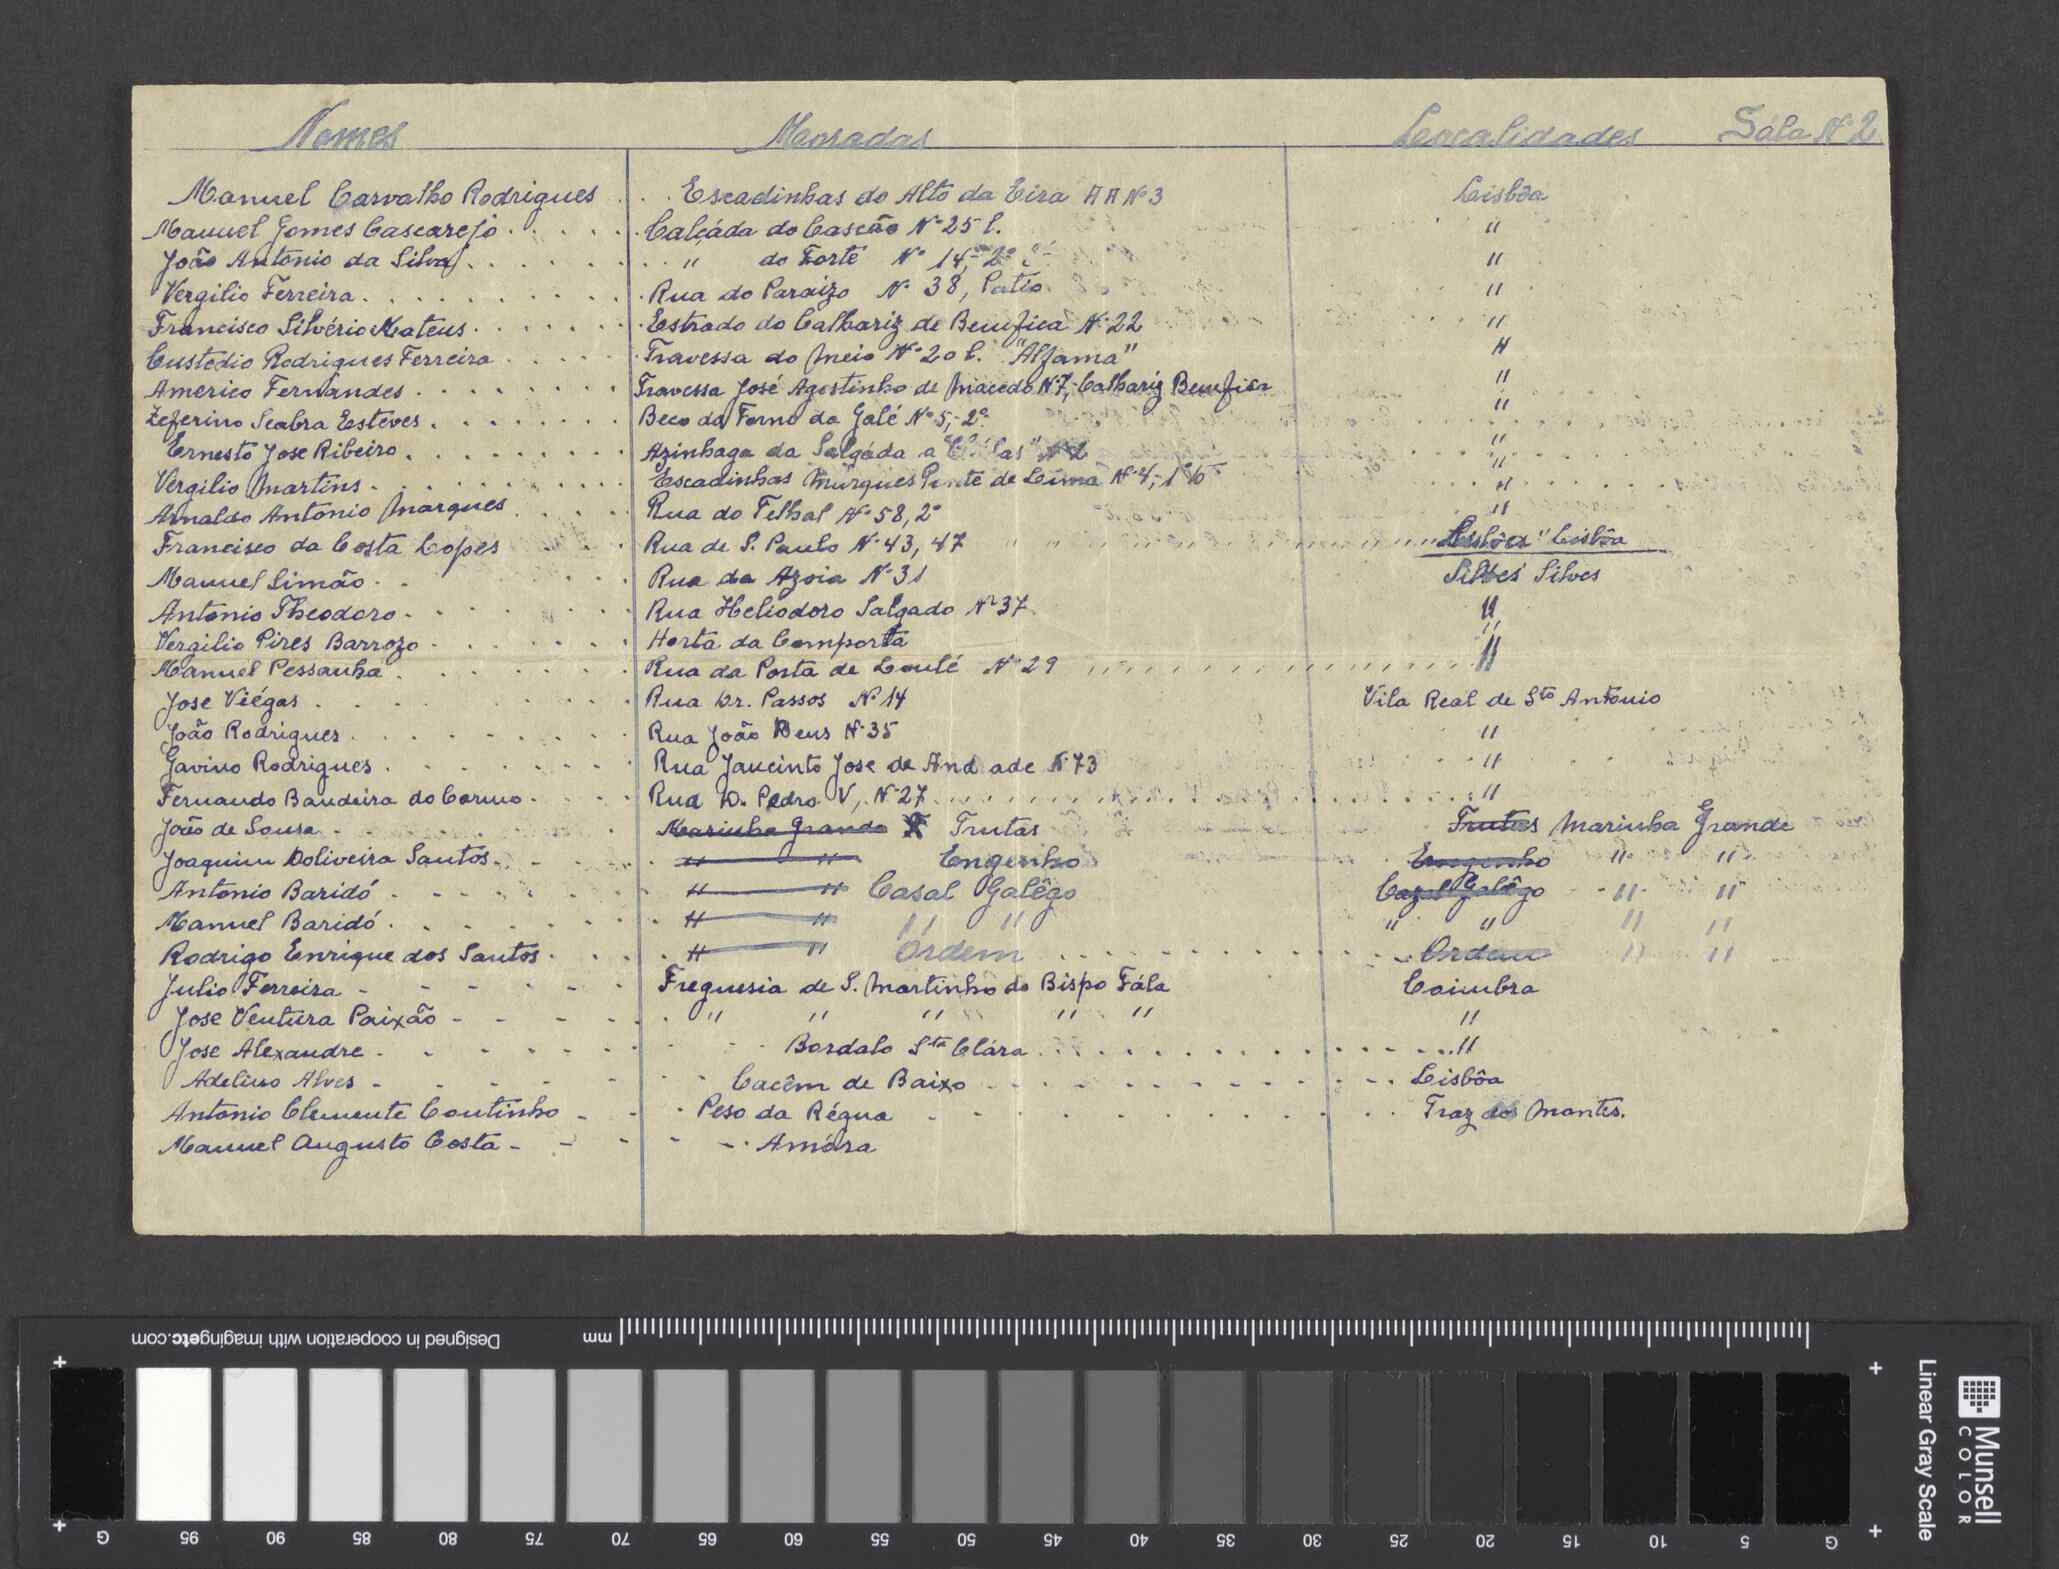 Nomes Moradas Localidades Sála Nº 2
Manuel Carvalho Rodrigues . . . Escadinhas do Alto da Eira A A Nº 3 Lisbôa
Manuel Gomes Cascarejo . . . . . Calçáda do Cascão Nº 25 C. "
João António da Silva . . . . . . " do Forte Nº 14, 2º "
Vergilio Ferreira . . . . . . . . Rua do Paraizo Nº 38, Patio "
Francisco Silvério Mateus . . . . . Estrada do Calhariz de Benfica Nº 22 "
Custódio Rodrigues Ferreira . . . . . Travessa do Meio Nº 20 C. "Alfama" "
Americo Fernandes . . . . . . . Travessa José Agostinho de Macedo Nº 7, Calhariz Benfica "
Zeferino Seabra Esteves . . . . . . . Beco do Forno da Galé Nº 5, 2º "
Ernesto Jose Ribeiro . . . . . . . Azinhaga da Salgáda a "
Vergilio Martins . . . . . . . . Escadinhas Marques Ponte de Lima Nº 4, 1º "
Arnaldo António Marques . . . . Rua do Telhal Nº 58, 2º "
Francisco da Costa Lopes . . . Rua de S. Paulo Nº 43, 47 Lisbôa " Lisbôa
Manuel Simão . . . . . Rua da Azoia Nº 31 Silves Silves
António Theodoro . . . . . . . Rua Heliodoro Salgado Nº 37. "
Vergilio Pires Barrozo . . . . . . . Horta da Comporta "
Manuel Pessanha . . . . . . . Rua da Porta de Loulé Nº 29 "
Jose Viégas . . . . . . . . Rua Dr. Passos Nº 14 Vila Real de Sto António
João Rodrigues . . . . . . . . Rua João Deus Nº 35 "
Gavino Rodrigues . . . . . . . . Rua Jaucinto Jose de And ade Nº 73 "
Fernando Bandeira do Carmo . . . . Rua D. Pedro V, Nº 27 . . . . . . . . "
João de Sousa - Marinha Grande Trutas Trutas Marinha Grande
Joaquim Doliveira Santos . . . . " " Engenho Engenho " "
Antonio Baridó . . . . . . . " " Casal Galêgo Cazal Galêgo " "
Manuel Baridó . . . . . . . " " " " " " " "
Rodrigo Enrique dos Santos . . . . " " Ordem . . . . . . . Ordem " "
Julio Ferreira - - - - - - - Freguesia de S. Martinho do Bispo Fála Coimbra
Jose Ventura Paixão - - - - - " " " " " "
Jose Alexandre . . . . . . . . . Bordalo Sta Clára . . . . . . . . "
Adelino Alves - - - - - - - Cacêm de Baixo . . . . . . . . Lisbôa
Antonio Clemente Coutinho - - . Peso da Régua - . . . . . . . Traz dos Montes.
Manuel Augusto Costa - - - - - . Amóra
Munsell COLOR
Linear Gray Scale
Designed in cooperation with imagingetc.com
mm
G 95 90 85 80 75 70 65 60 55 50 45 40 35 30 25 20 15 10 5 G